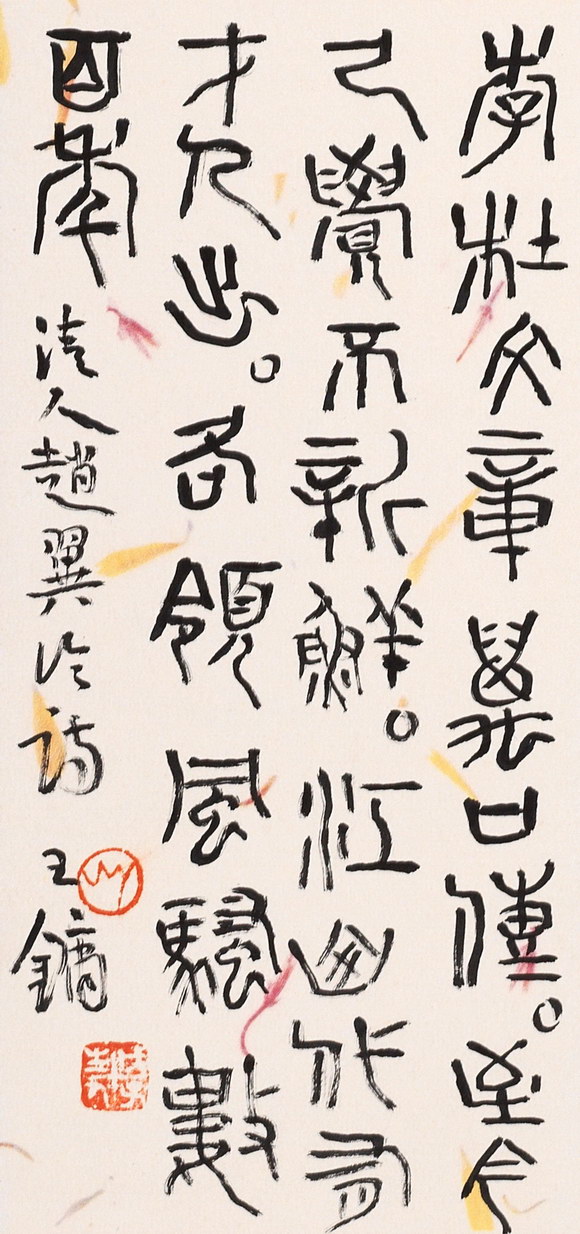 李杜文章萬口傳。至今
已覺不新鮮。江山代有
才人出。各領風騷數
百年 清人趙翼論詩 王鏞